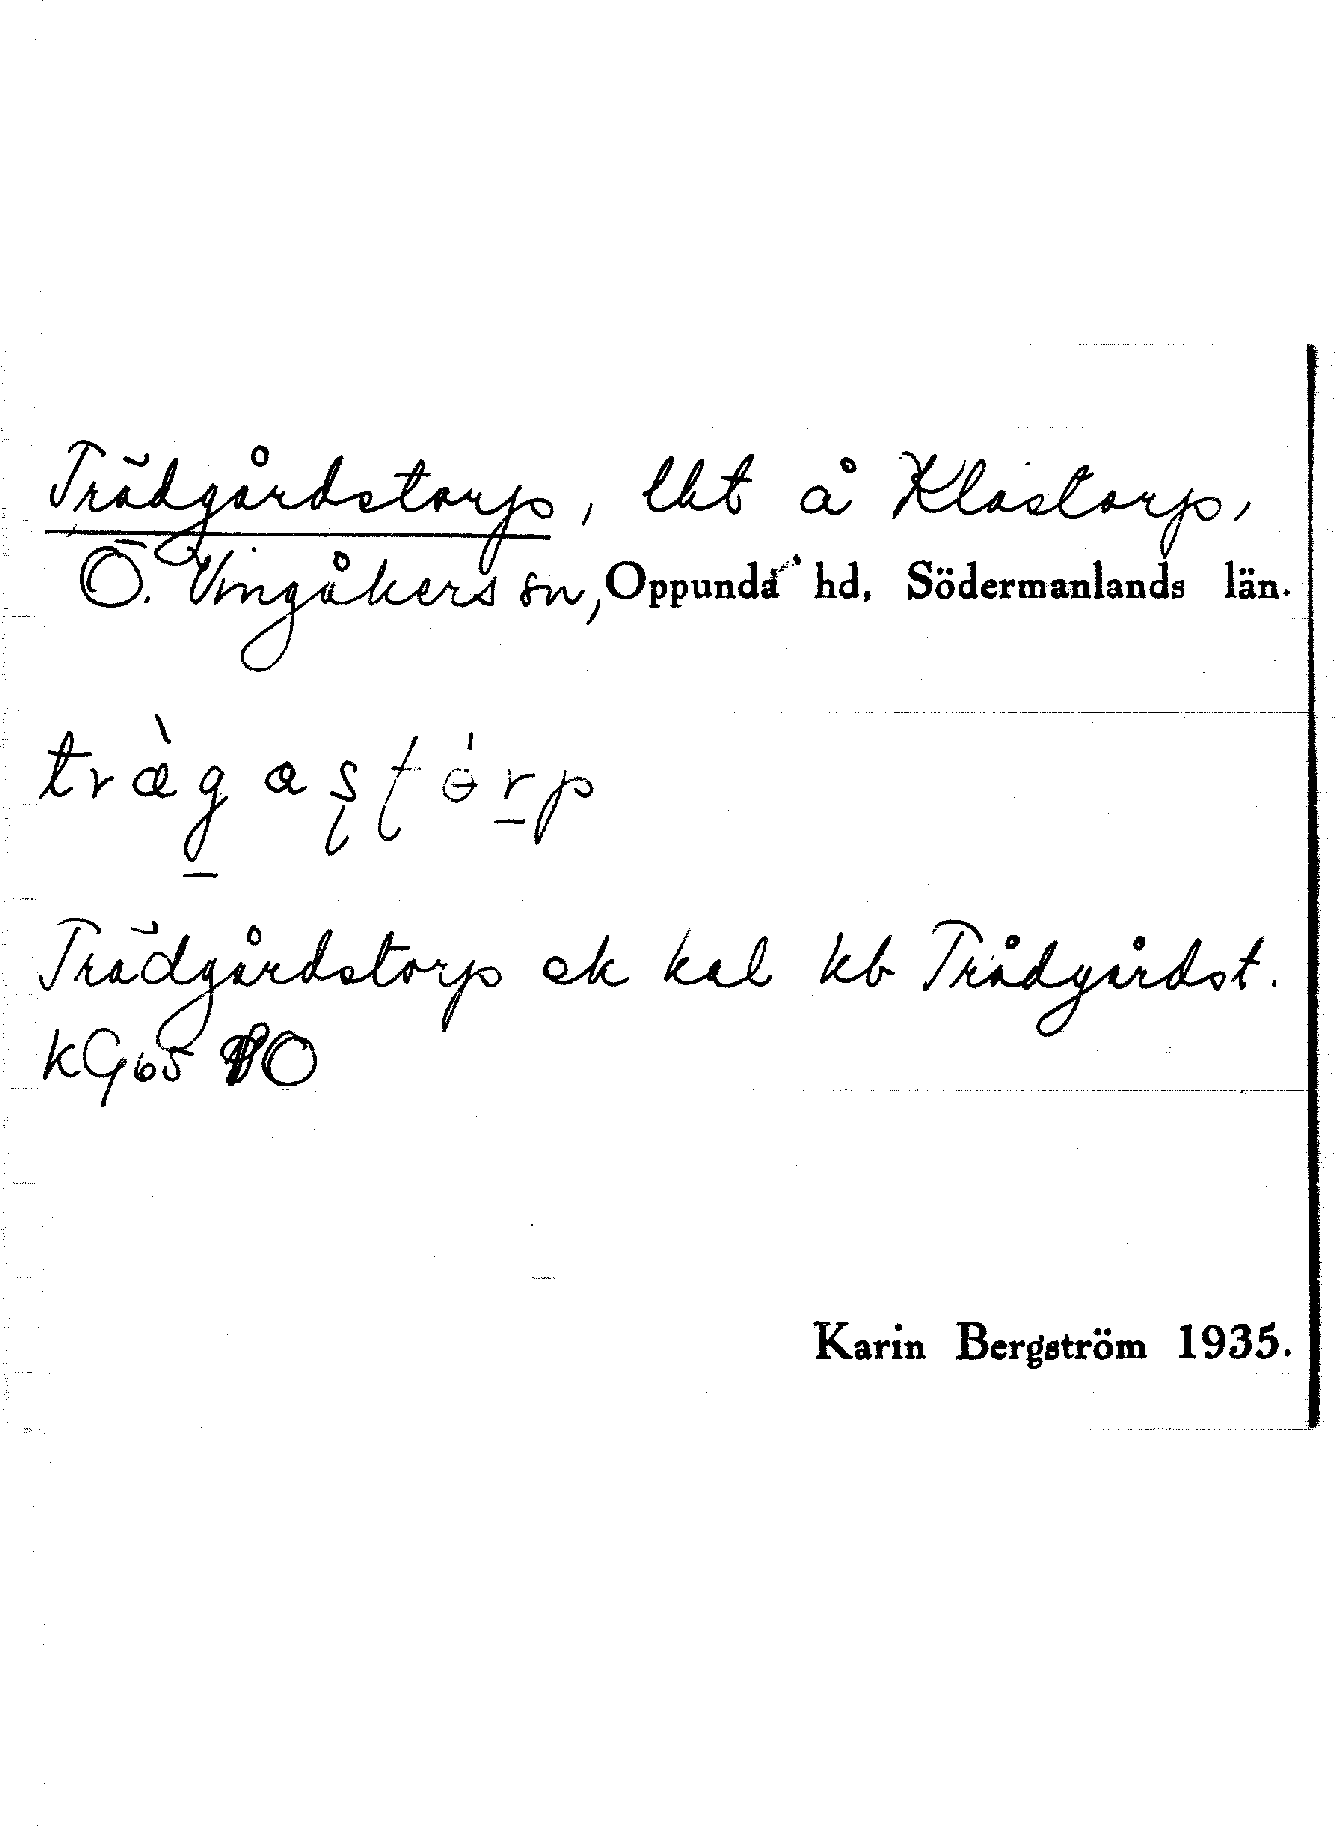 Trädgårdstorp, lht å Klastorp,
Ö. Vingåkers sn, Oppunda hd, Södermanlands län.
trægastorp
Trädgårdstorp ek kal kb Trådgårdst.
KG65
Karin Bergström 1935.